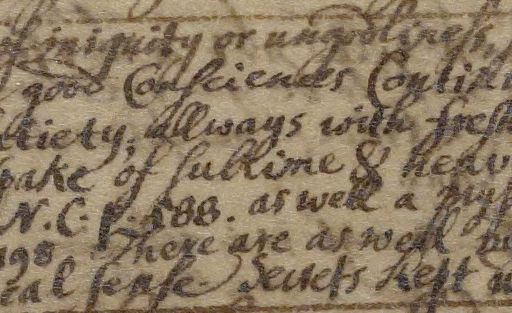 iniquity or ungodliness,
good Consciences Contin
tiety, allways with fresh
pake of sublime & heav
N. C. p. 588. as well a
198. There are as well
cal sense. Secrets kept